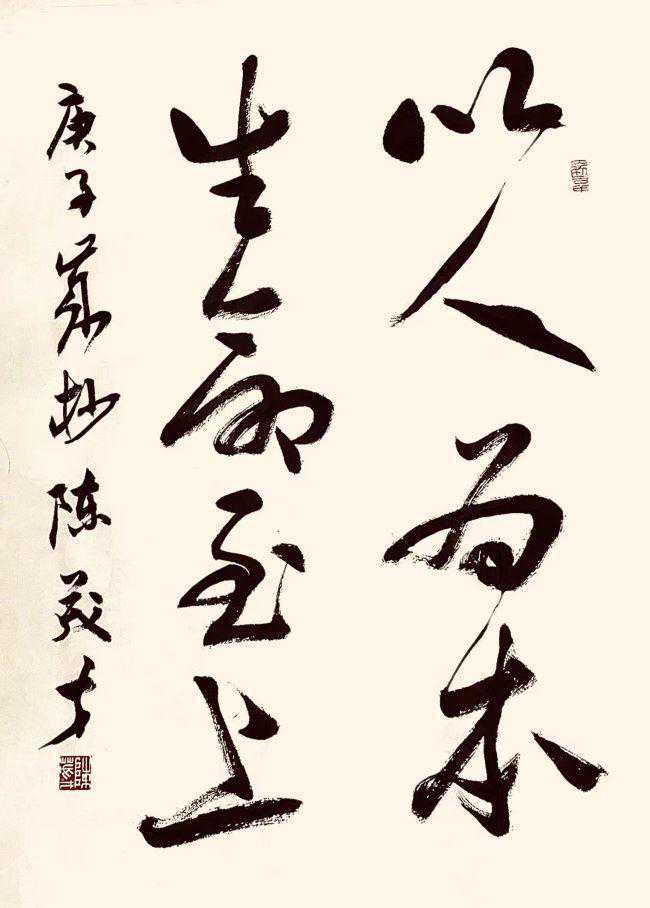 以人为本
生命至上
庚子岁杪 陈茂才